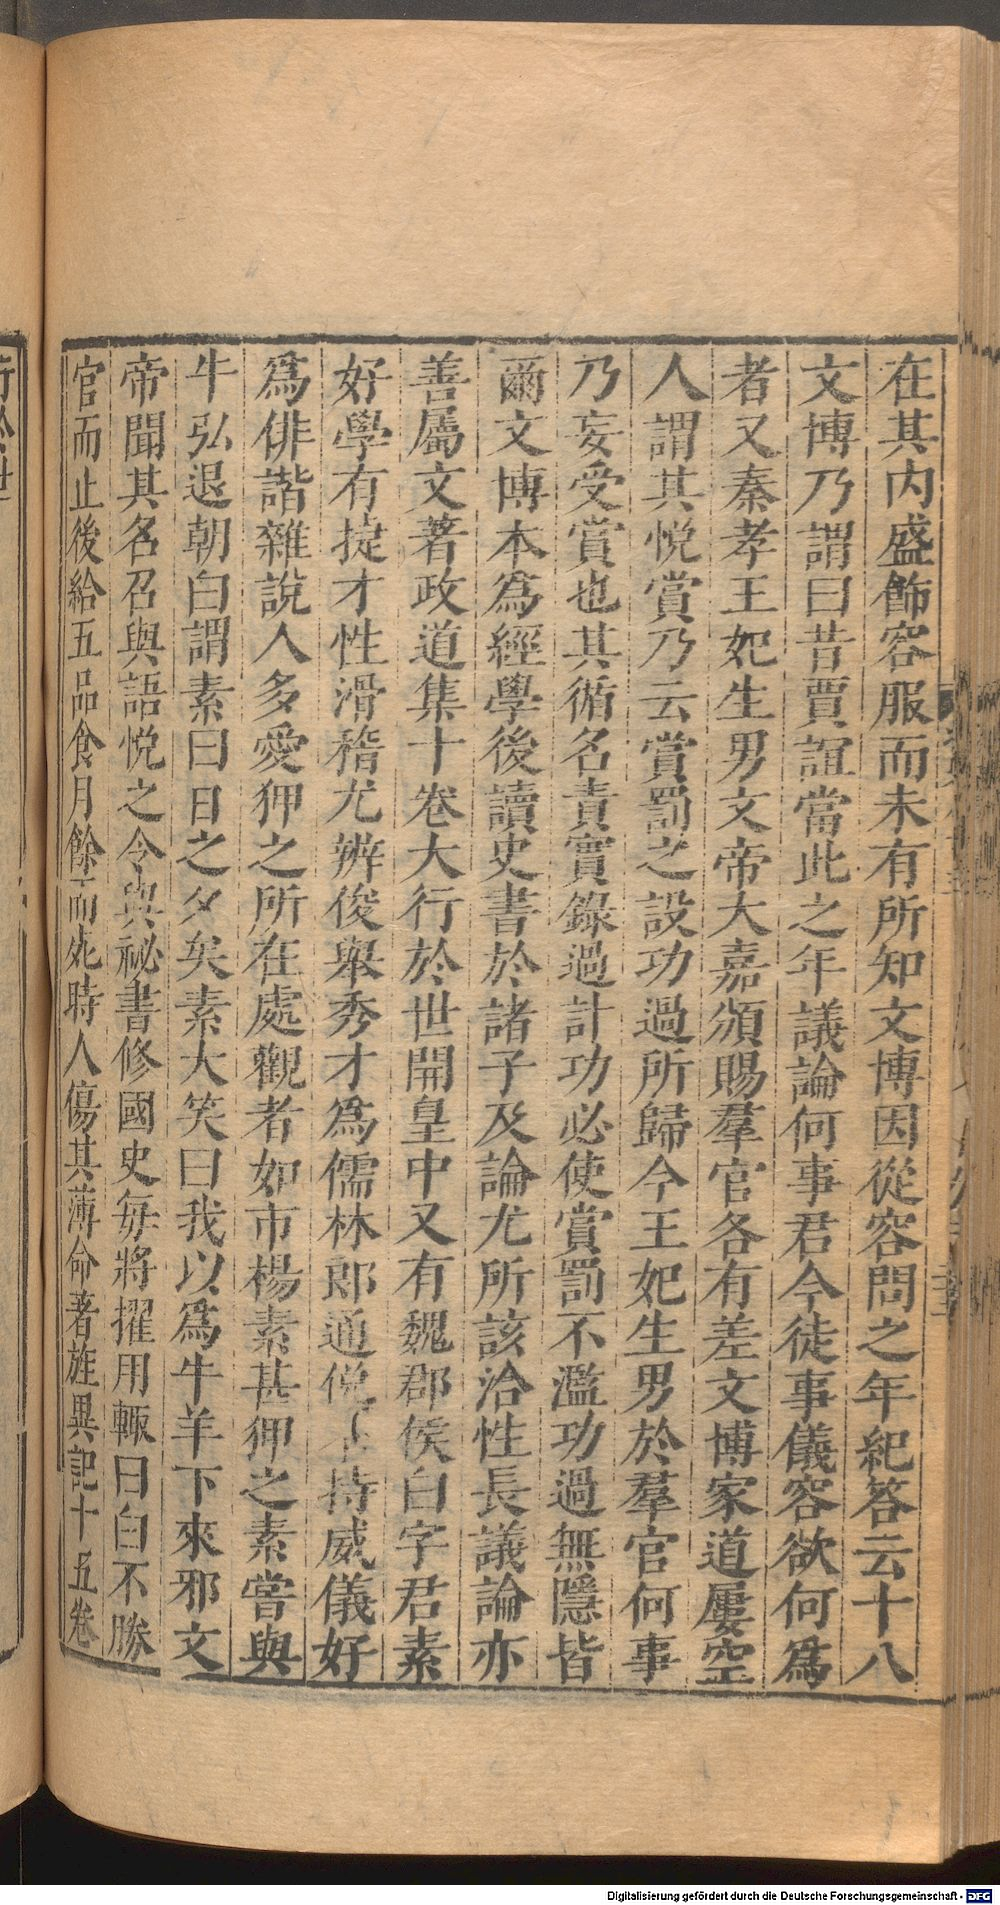 在其内盛飾容服而未有所知文博因從容問之年紀答云十八
文博乃謂曰昔賈誼當此之年議論何事君今徒事儀容欲何爲
者又秦孝王妃生男文帝大嘉頒賜羣官各有差文博家道屢空
人謂其悅賞乃云賞罰之設功過所歸今王妃生男於羣官何事
乃妄受賞也其循名責實錄過計功必使賞罰不濫功過無隱皆
爾文博本爲經學後讀史書於諸子及論尤所該洽性長議論亦
善屬文著政道集十卷大行於世開皇中又有魏郡侯白字君素
好學有捷才性滑稽尤辨俊舉秀才爲儒林郎通侻不持威儀好
爲俳諧雜說人多愛狎之所在處觀者如市楊素甚狎之素嘗與
牛弘退朝白謂素曰日之夕矣素大笑曰我以爲牛羊下來邪文
帝聞其名召與語悅之令與祕書修國史每將擢用輒曰白不勝
官而止後給五品食月餘而死時人傷其薄命著旌異記十五卷
行於世
Digitalisierung gefördert durch die Deutsche Forschungsgemeinschaft - DFG